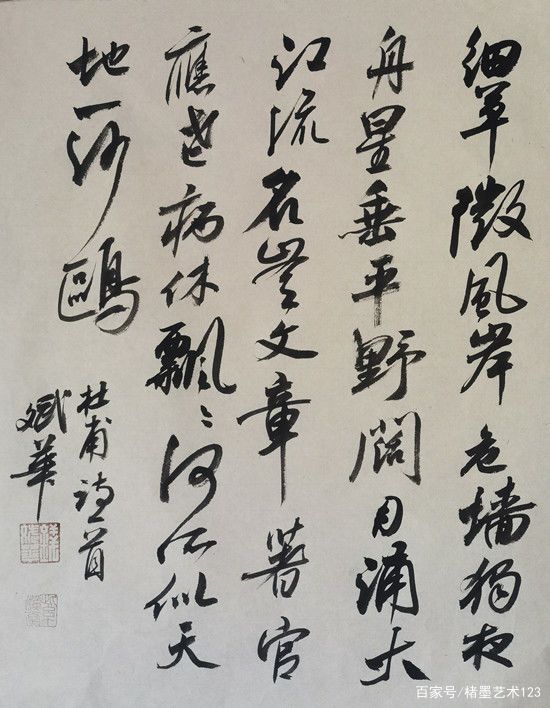 细草微風岸危墙独夜
舟星垂平野闊月涌大
江流名豈文章著官
應老病休飄〻何所似天
地一沙鷗
杜甫诗一首
斌華
百家号/楮墨艺术123